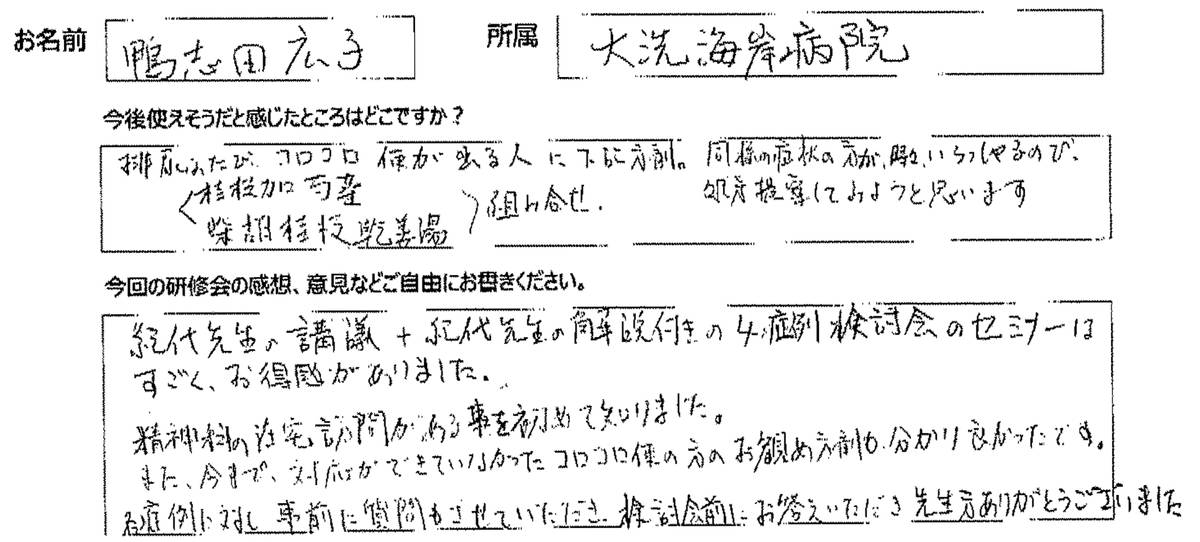 お名前 鴨志田 広子 所属 大洗海岸病院
今後使えそうだと感じたところはどこですか？
コロコロ便が出る人に下記方剤。同様の症状の方が、時々いらっしゃるので、
桂枝加芍薬 処方提案してみようと思います
柴胡桂枝乾姜湯 組み合せ.
今回の研修会の感想、意見などご自由にお書きください。
紀代先生の講議＋紀代先生の解説付きの4症例検討会のセミナーは
すごく、お得感がありました。
精神科の在宅訪問がある事を初めて知りました。
また、今まで、対応ができていなかったコロコロ便の方のお勧め方剤も分かり良かったです。
各症例に対し事前に質問もさせていただき、検討会前にお答えいただき先生方ありがとうございました